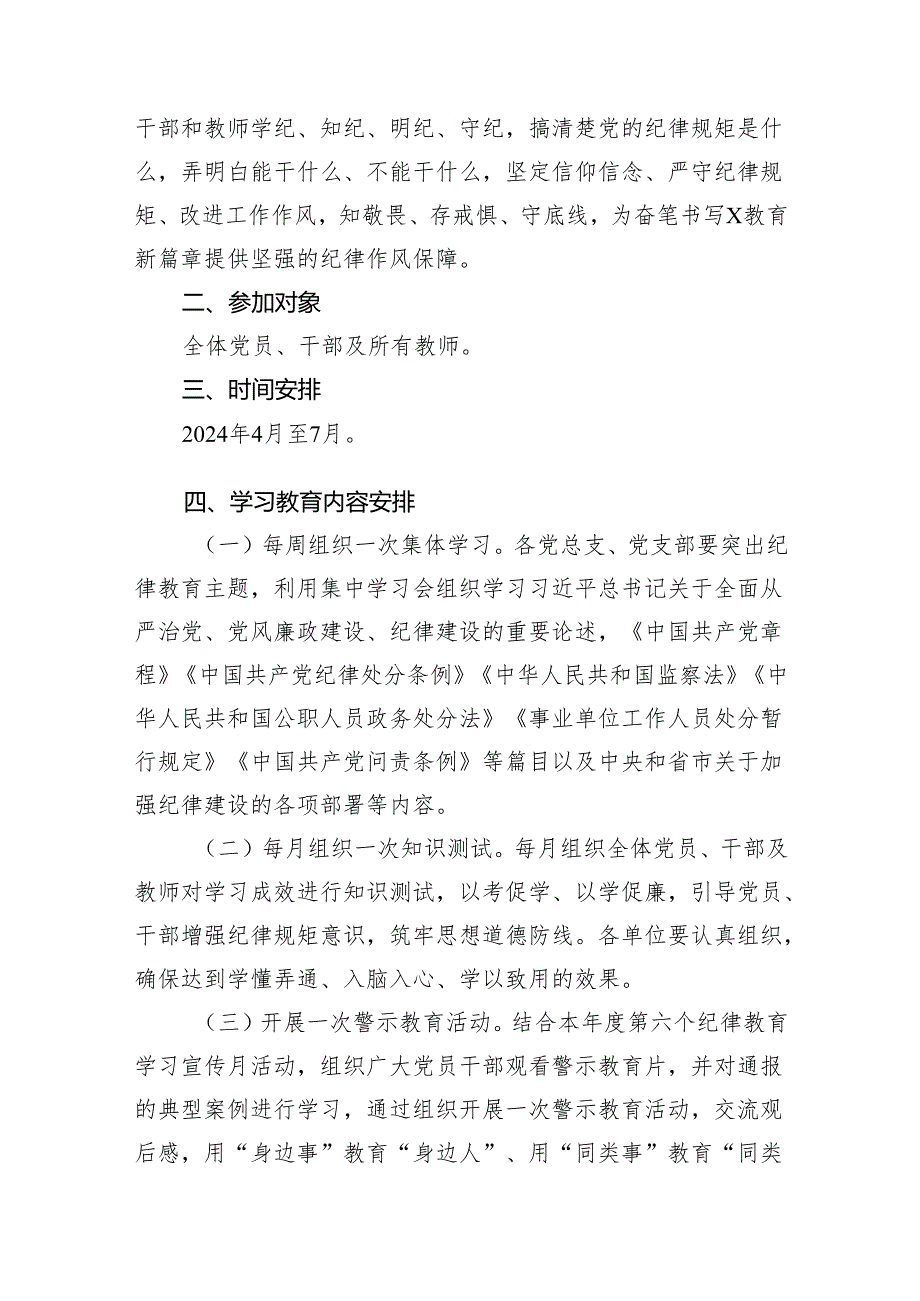 干部和教师学纪、知纪、明纪、守纪，搞清楚党的纪律规矩是什
么，弄明白能干什么、不能干什么，坚定信仰信念、严守纪律规
矩、改进工作作风，知敬畏、存戒惧、守底线，为奋笔书写X教育
新篇章提供坚强的纪律作风保障。
二、参加对象
全体党员、干部及所有教师。
三、时间安排
2024年4月至7月。
四、学习教育内容安排
（一）每周组织一次集体学习。各党总支、党支部要突出纪
律教育主题，利用集中学习会组织学习习近平总书记关于全面从
严治党、党风廉政建设、纪律建设的重要论述，《中国共产党章
程》《中国共产党纪律处分条例》《中华人民共和国监察法》《中
华人民共和国公职人员政务处分法》《事业单位工作人员处分暂
行规定》《中国共产党问责条例》等篇目以及中央和省市关于加
强纪律建设的各项部署等内容。
（二）每月组织一次知识测试。每月组织全体党员、干部及
教师对学习成效进行知识测试，以考促学、以学促廉，引导党员、
干部增强纪律规矩意识，筑牢思想道德防线。各单位要认真组织，
确保达到学懂弄通、入脑入心、学以致用的效果。
（三）开展一次警示教育活动。结合本年度第六个纪律教育
学习宣传月活动，组织广大党员干部观看警示教育片，并对通报
的典型案例进行学习，通过组织开展一次警示教育活动，交流观
后感，用“身边事”教育“身边人”、用“同类事”教育“同类